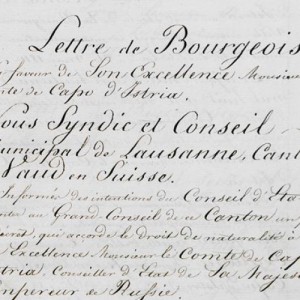 Lettre de Bourgeois
faveur de Son Excellence Monsieur
de Capo d'Istria.
Nous Syndic et Conseil
unicipal de Lausanne, Cant
Vaud en Suisse.
Informés des intentions du Conseil d'Eta
au Grand Conseil de ce Canton un
qui accorde le droit de naturalité à
Excellence Monsieur le Comte de Cap
stria, Conseiller d'Etat de Sa Majes
mpereur de Russie